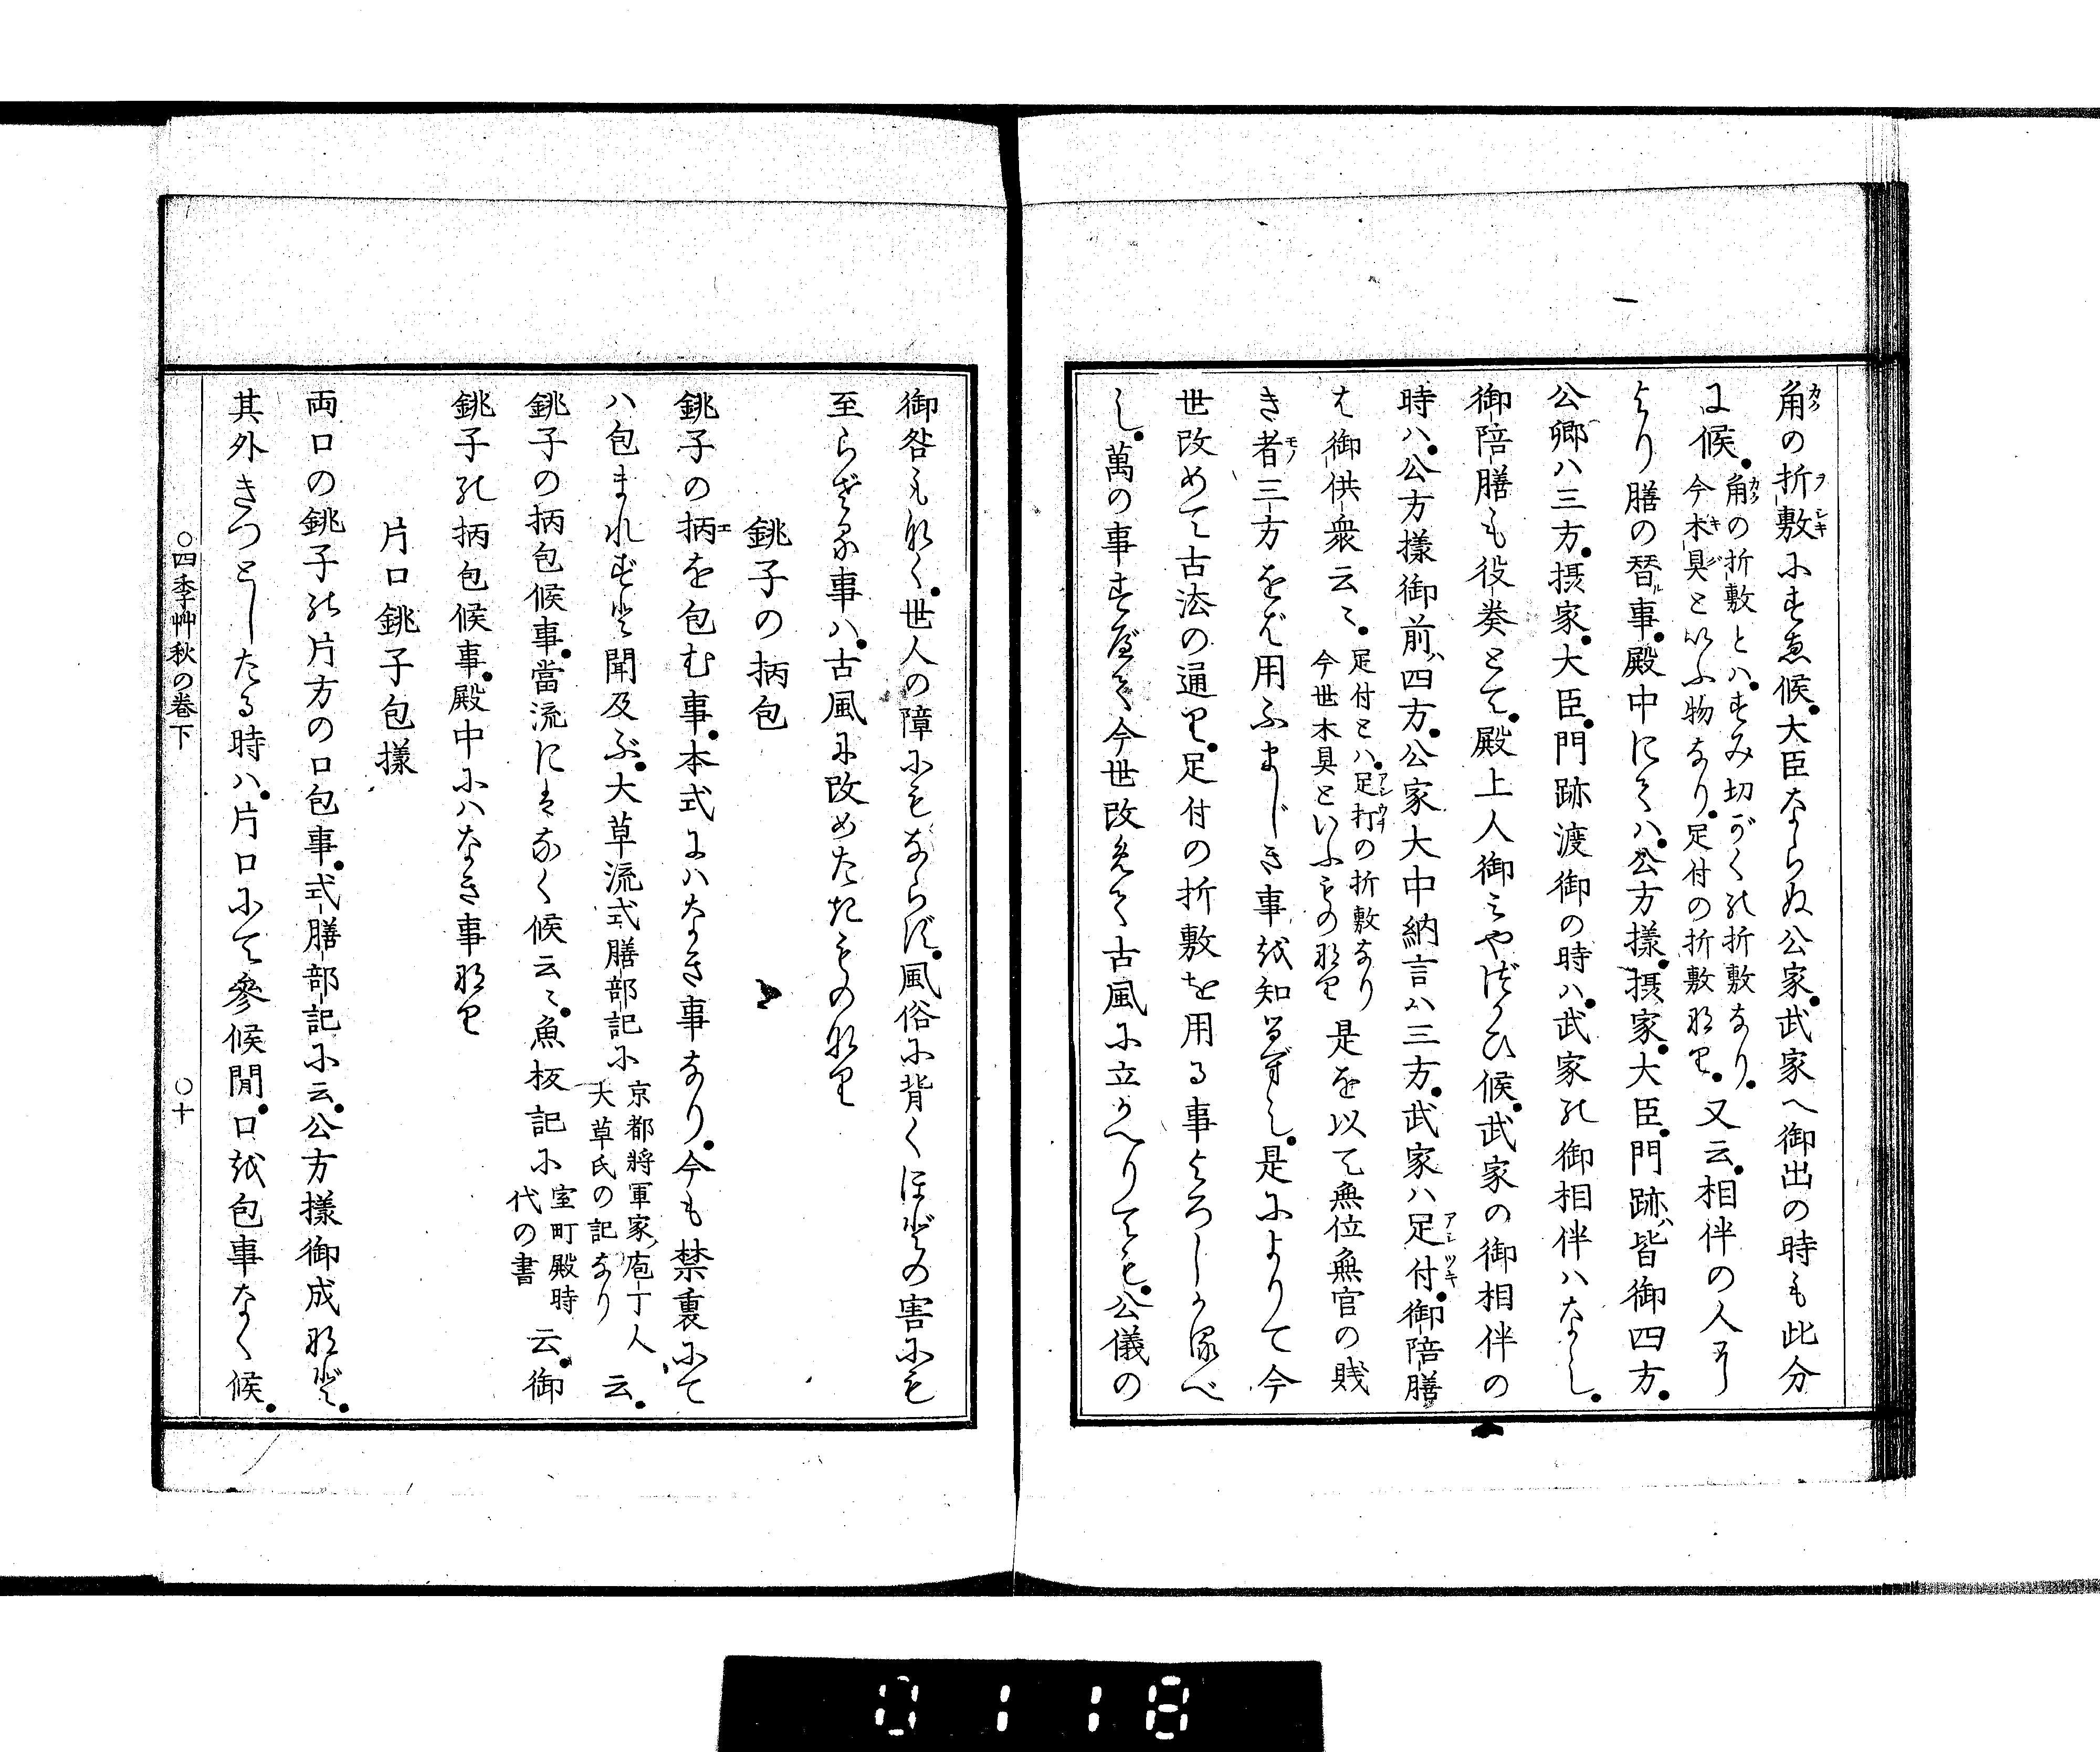 角の折敷にすゑ候。大臣ならぬ公家。武家へ御出の時も此分
に候。角の折敷とハ。すみ切がくの折敷なり。今木具といふ物なり。足付の折敷なり。又云。相伴の人に
より膳の替ル事。殿中にてハ。公方様。摂家。大臣。門跡ハ皆御四方。
公卿ハ三方。摂家。大臣。門跡渡御の時ハ。武家の御相伴ハなし。
御陪膳も役奏とて。殿上人御ミやづかひ候。武家の御相伴の
時ハ。公方様御前ハ四方。公家大中納言ハ三方。武家ハ足付。御陪膳
は御供衆云々。足付とハ。足打の折敷なり今世木具といふもの なり 是を以て無位無官の賤
き者三方をば用ふまじき事を知るべし。是によりて今
世改めて古法の通り。足付の折敷を用る事よろしかるべ
し。萬の事すべて今世改めて古風に立かへりても。公儀の
御咎もなく。世人の障にもならず。風俗に背くほどの害にも
至らざる事ハ。古風に改めたきものなり
銚子の柄包
銚子の柄を包む事。本式にハなき事なり。今も禁裏にて
ハ包まれずと聞及ぶ。大草流式膳部記に京都将軍家ノ庖丁人大草氏の記なり云。
銚子の柄包候事。當流にはなく候云々。魚板記に室町殿時代の書云。御
銚子の柄包候事。殿中にハなき事なり
片口銚子包様
両口の銚子の片方の口包事。式膳部記に云。公方様御成など。
其外きつとしたる時ハ。片口にて參候間。口を包事なく候。
○四季艸秋の巻下　○十
0118